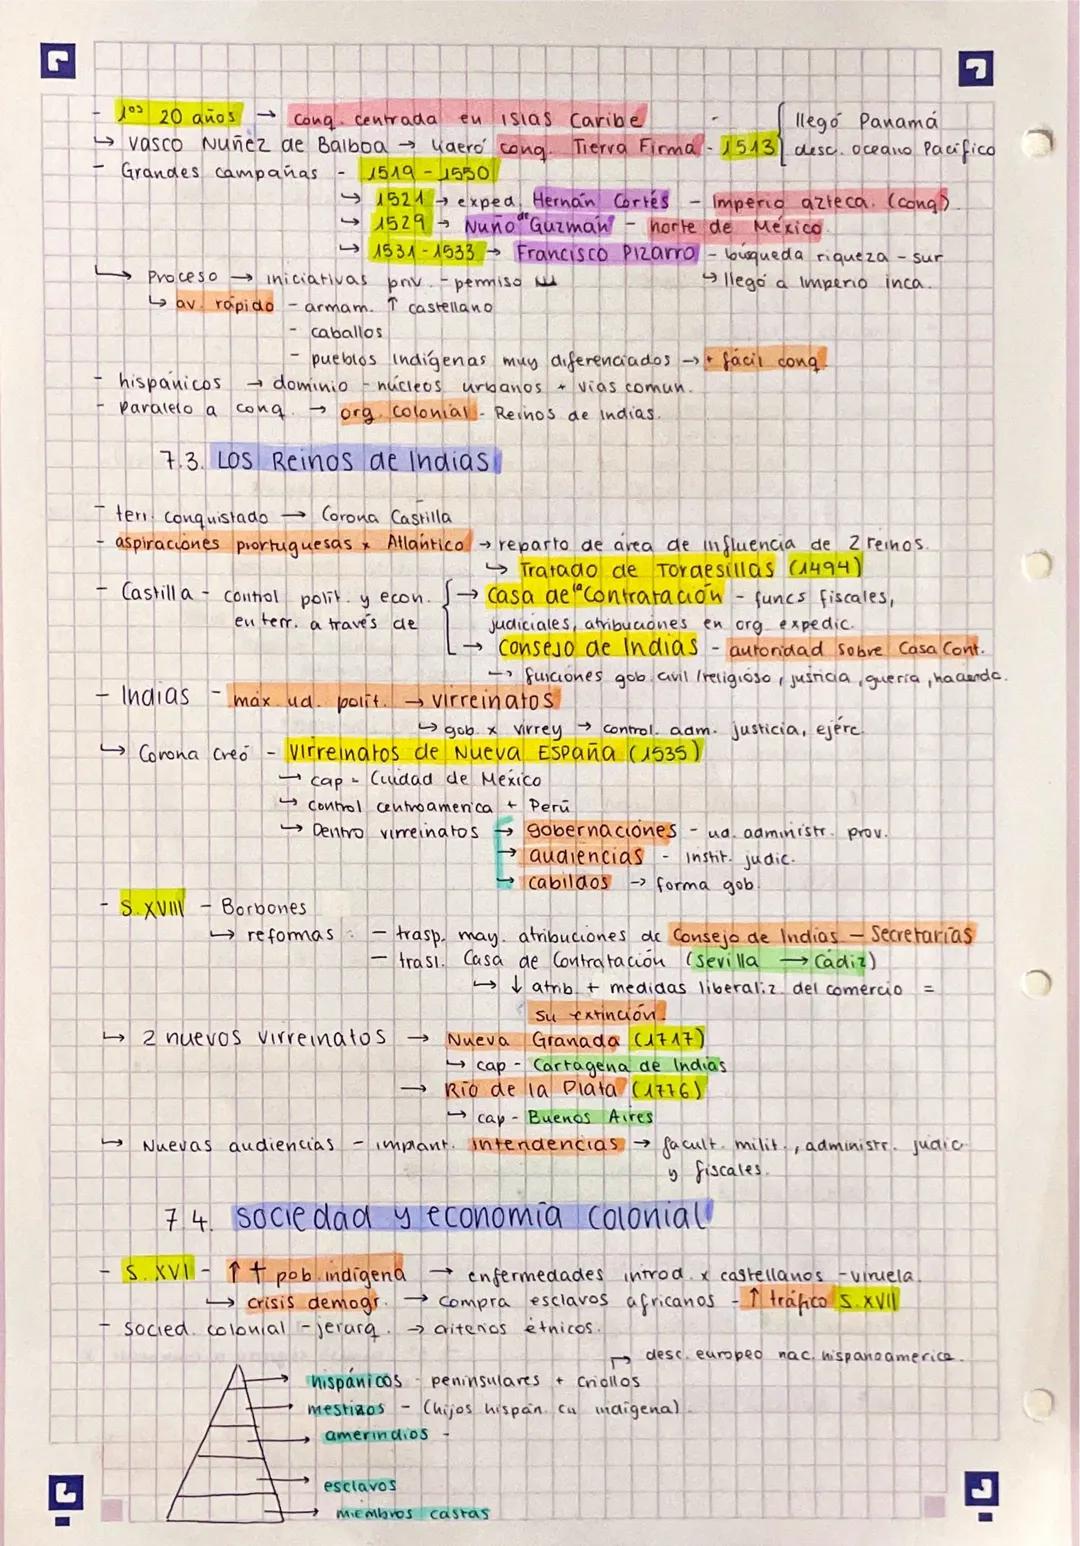 - 1os 20 años → conq. centrada en islas Caribe
llegó Panamá
↳ Vasco Nuñez de Balboa → lideró conq. Tierra Firma - 1513 desc. oceano Pacífico
- Grandes campañas - 1519 - 1550
↳ 1521 → exped. Hernán Cortés - Imperio azteca. (conq).
↳ 1529 → Nuño de Guzmán - norte de México.
↳ 1531 - 1533 → Francisco Pizarro - búsqueda riqueza - sur
↳ Proceso → iniciativas priv. - permiso
↳ llegó a Imperio inca.
↳ av. rápido - armam. ↑ castellano
- caballos
- pueblos indígenas muy diferenciados → + fácil conq.
- hispánicos → dominio - núcleos urbanos + vías comun.
- paralelo a conq. → org. colonial - Reinos de Indias.
7.3. Los Reinos de Indias
- terr. conquistado → Corona Castilla
- aspiraciones prortuguesas x Atlántico → reparto de área de influencia de 2 reinos.
↳ Tratado de Tordesillas (1494)
- Castilla - control polit. y econ. → Casa de la Contratación - funcs fiscales,
en terr. a través de judiciales, atribuciones en org expedic.
→ Consejo de Indias - autoridad sobre Casa Cont.
↳ funciones gob. civil / religioso, justicia, guerra, hacienda.
- Indias - máx. ud. polit. → virreinatos
↳ gob. x virrey → control. adm. justicia, ejérc.
↳ Corona creó - Virreinatos de Nueva España (1535)
→ cap - Ciudad de México
↳ control centroamerica + Perú
→ Dentro virreinatos → gobernaciones - ud. administr. prov.
→ audiencias - instit. judic.
↳ cabildos → forma gob.
- S. XVIII - Borbones
↳ reformas: - trasp. may. atribuciones de Consejo de Indias - Secretarías
- trasl. Casa de Contratación (Sevilla → Cádiz)
↳ ↓ atrib. + medidas liberaliz. del comercio =
su extinción.
↳ 2 nuevos virreinatos → Nueva Granada (1717)
↳ cap - Cartagena de Indias
→ Río de la Plata (1776)
↳ cap - Buenos Aires
↳ Nuevas audiencias - implant. intendencias → facult. milit., administr. judic
y fiscales.
7.4. Sociedad y economía colonial
- S. XVI - ↑ † pob. indígena → enfermedades introd. x castellanos - viruela.
↳ crisis demogr. → compra esclavos africanos - ↑ tráfico S. XVII
- socied. colonial - jerarq. → criterios étnicos.
desc. europeo nac. hispanoamerica.
hispánicos - peninsulares + criollos
mestizos - (hijos hispán. cn indígena).
amerindios -
esclavos
miembros castas